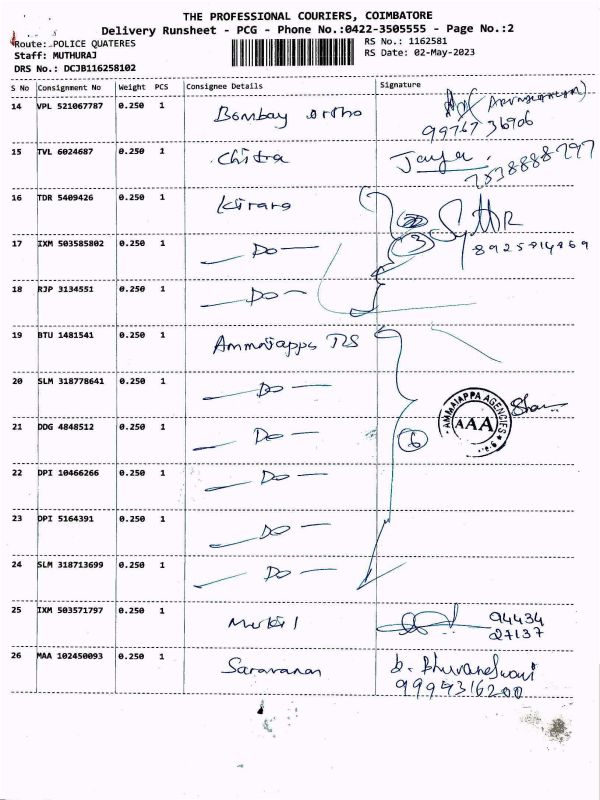 THE PROFESSIONAL COURIERS, COIMBATORE
Delivery Runsheet - PCG - Phone No.:0422-3505555 - Page No.:2
Route: POLICE QUATERES
RS No.: 1162581
Staff: MUTHURAJ
RS Date: 02-May-2023
DRS No.: DCJB116258102
S No Consignment No Weight PCS Consignee Details Signature
14 VPL 521067787 0.250 1 Bombay ortho
99767 36906
15 TVL 6024687 0.250 1 Chitra Jaya
7538888797
16 TDR 5409426 0.250 1
17 IXM 503585802 0.250 1 — Do — 3
18 RJP 3134551 0.250 1 — Do —
19 BTU 1481541 0.250 1 Ammaiappa
20 SLM 318778641 0.250 1 — Do —
AMMAIAPPA AGENCIES
AAA
21 DDG 4848512 0.250 1 — Do — 6
22 DPI 10466266 0.250 1 — Do —
23 DPI 5164391 0.250 1 — Do —
24 SLM 318713699 0.250 1 — Do —
25 IXM 503571797 0.250 1 94434
27137
26 MAA 102450093 0.250 1 Saravanan b. Bhuvaneswari
9994316200